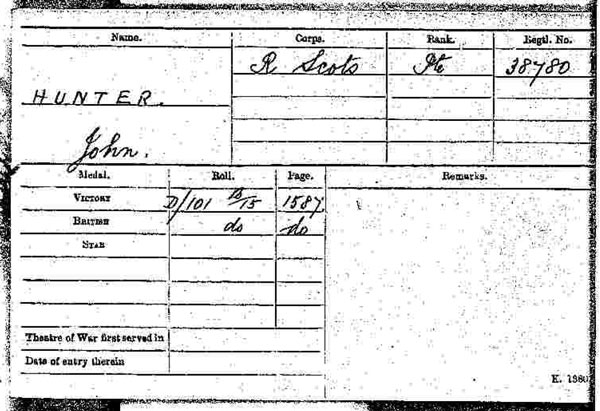 Name. Corps. Rank. Regtl. No.
HUNTER. R Scots Pte 38780
John.
Medal. Roll. Page. Remarks.
VICTORY D/101 B/15 1587
BRITISH do do
STAR
Theatre of War first served in
Date of entry therein
K. 1380